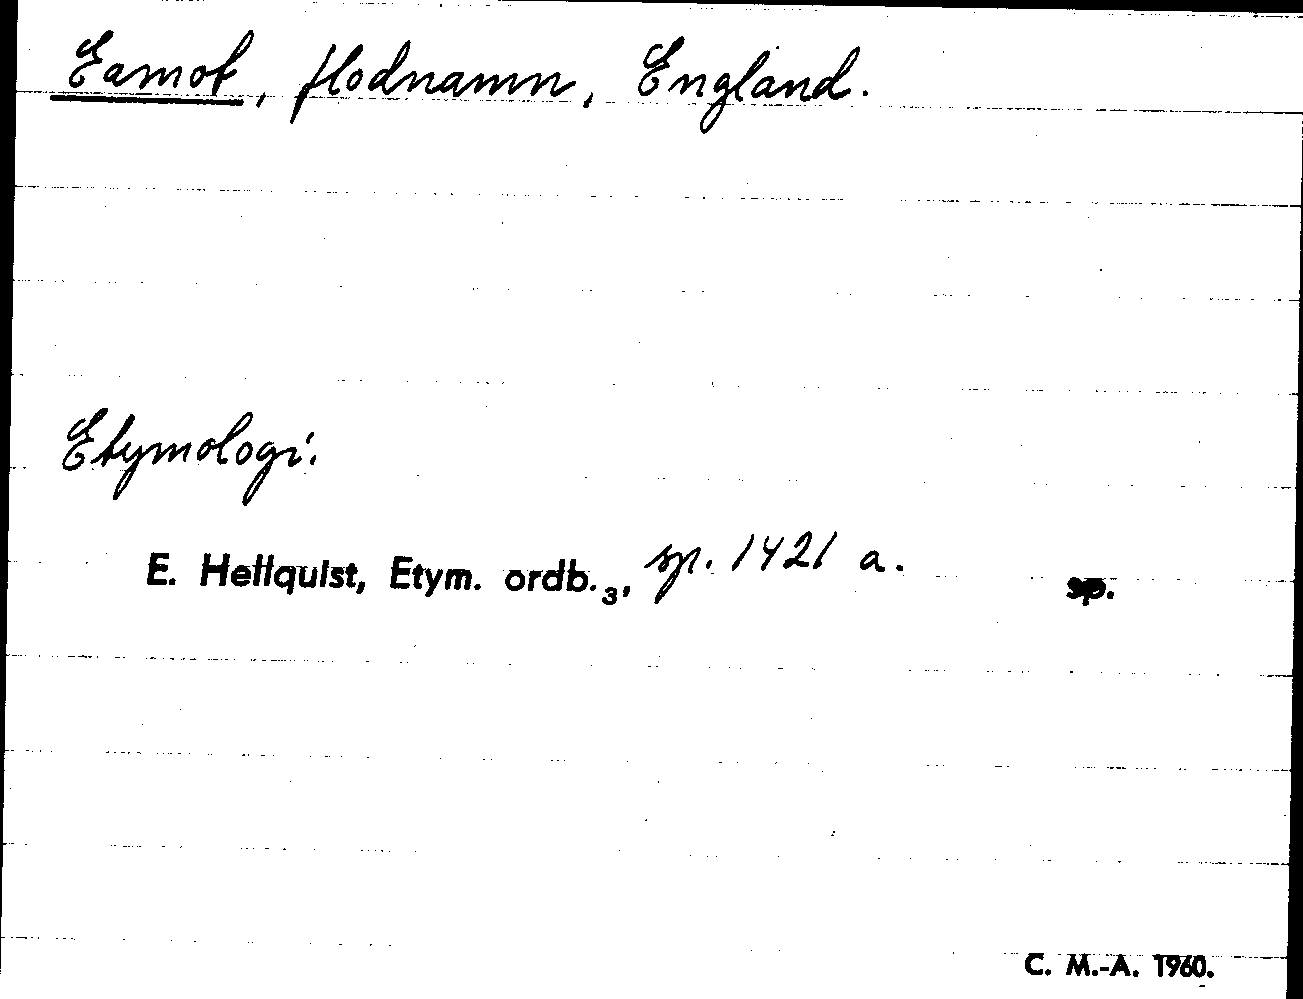 Eamot, flodnamn, England.
Etymologi:
E. Hellquist, Etym. ordb.₃, sp. 1421 a. sp.
C. M.-A. 1960.